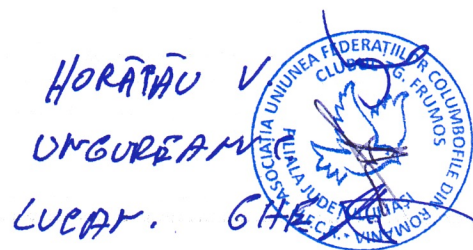 HORĂȚĂU V.
UNGUREANU C
LUCAN. GHE
ASOCIAȚIA UNIUNEA FEDERAȚIILOR COLUMBOFILE DIN ROMÂNIA
CLUBUL TG. FRUMOS
FILIALA JUDEȚULUI IAȘI